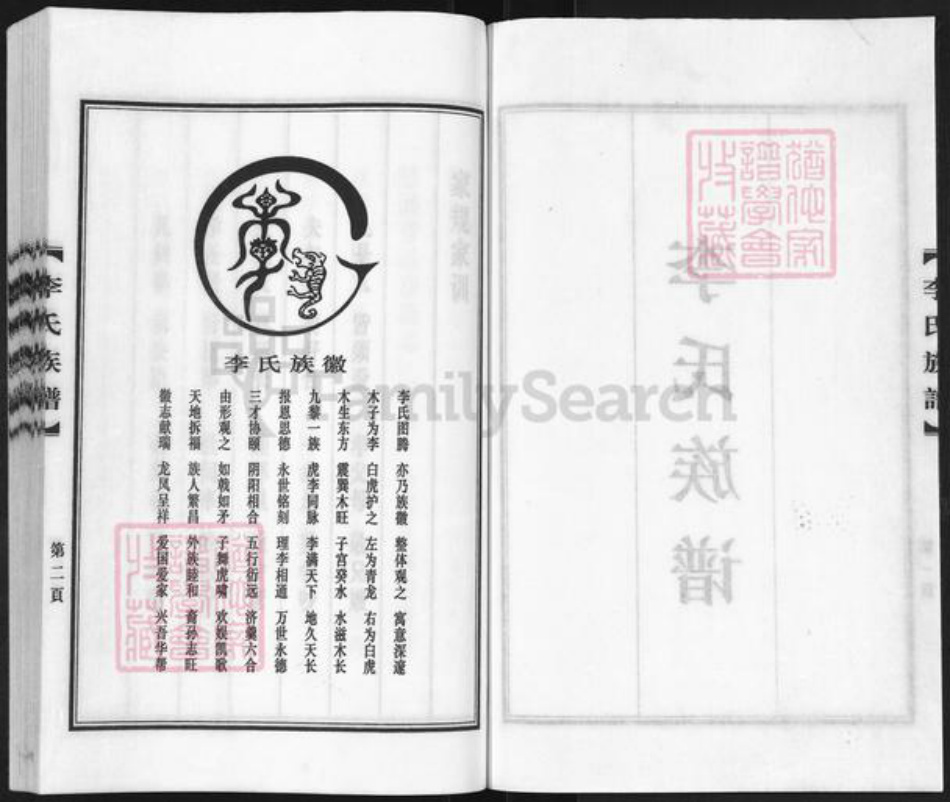 李氏族谱
李氏族徽
李氏图腾 亦乃族徽 整体观之 寓意深邃
木子为李 白虎护之 左为青龙 右为白虎
木生东方 震巽木旺 子宫癸水 水滋木长
九黎一族 虎李同脉 李满天下 地久天长
报恩恩德 永世铭刻 理李相通 万世永德
三才协颐 阴阳相合 五行衍远 济羹六合
由形观之 如戟如矛 子舞虎啸 欢娱凯歌
天地拆福 族人繁昌 外族睦和 裔孙志旺
徽志献瑞 龙凤呈祥 爱国爱家 兴吾华帮
【李氏族谱】
第二頁
FamilySearch